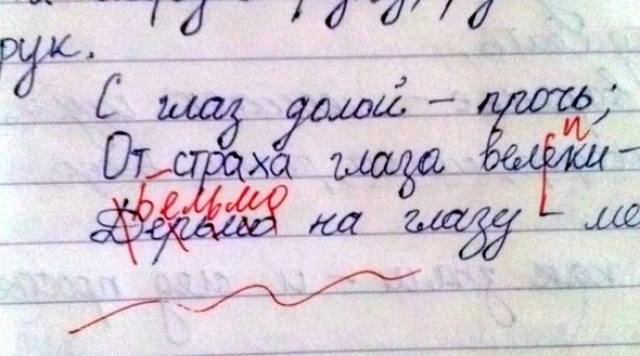 рук.
С глаз долой – прочь;
и
От страха глаза велеки –
бельмо
Дерьмо на глазу –